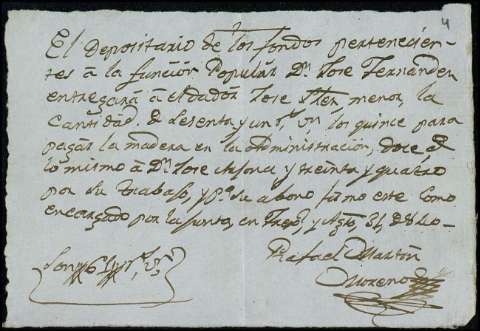 4
El Depositario de los fondos pertenecien-
tes â la función Popular Dn. Jose Fernandez
entregará â el dador Jose menor, la
cantidad de sesenta y un rs. vn. los quince para
pagar la madera en la Administración, doce
lo mismo â Dn. Jose y treinta y quatro
por su trabajo, y pa. su abono firmo este como
encargado por la Junta, en y Agto. 31, de 840.
Rafael Martín
Moreno
Son 61 rs. vn.